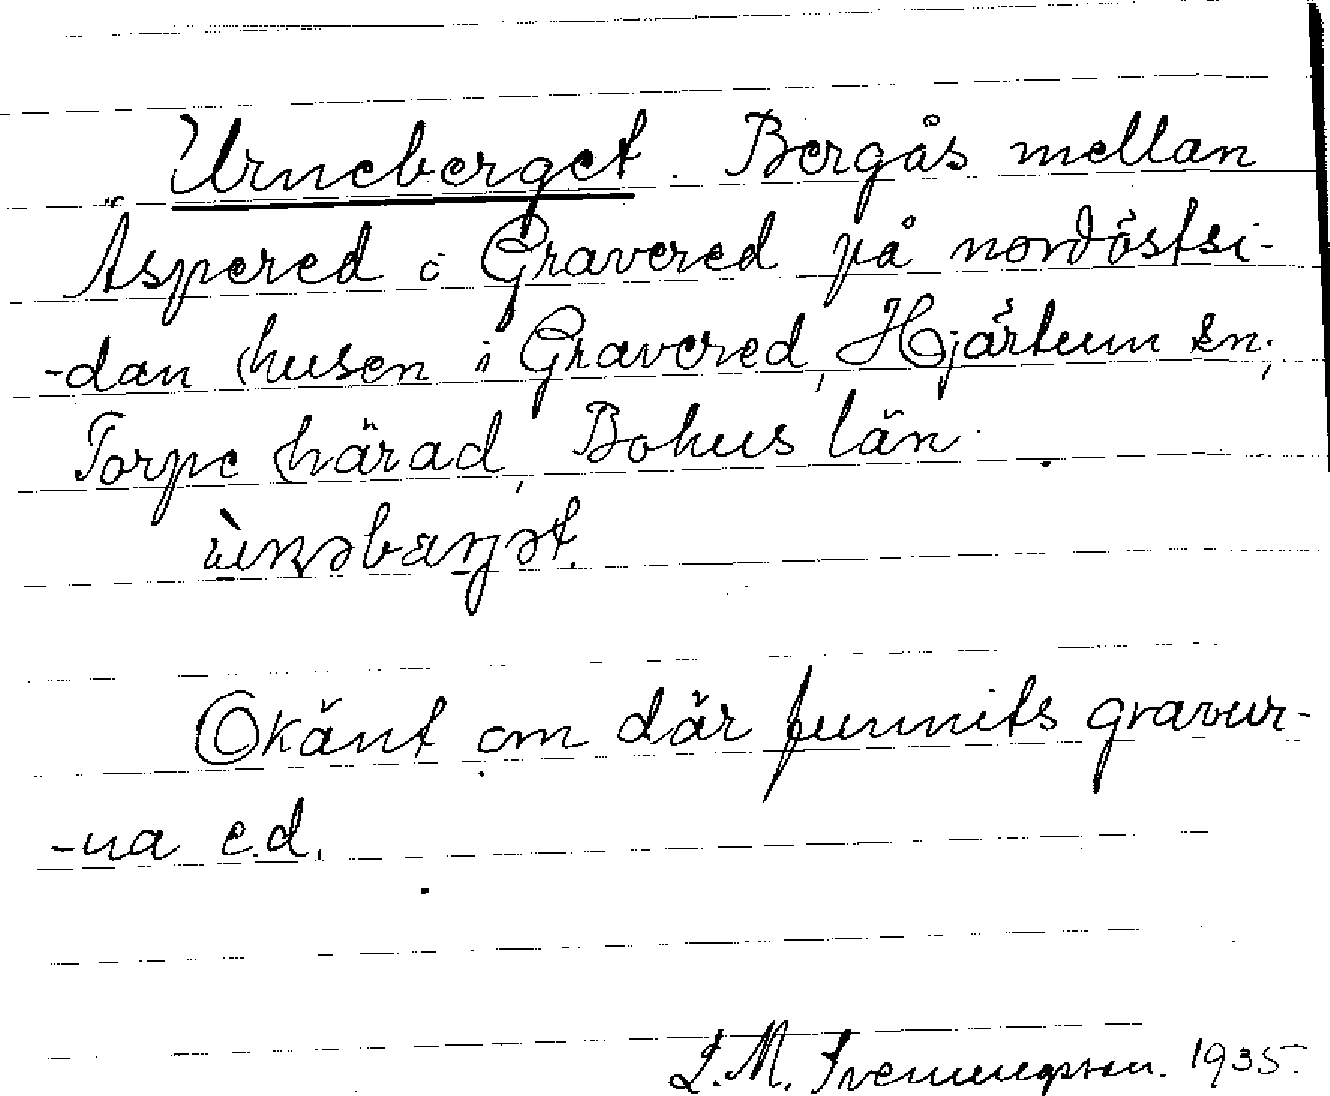 Urneberget. Bergås mellan
Äspered o Gravered på nordöstsi-
-dan husen i Gravered, Hjärtum sn,
Torpe härad, Bohus län.
Okänt om där funnits gravur-
-na e.d.
L.M. Svenungsson. 1935.